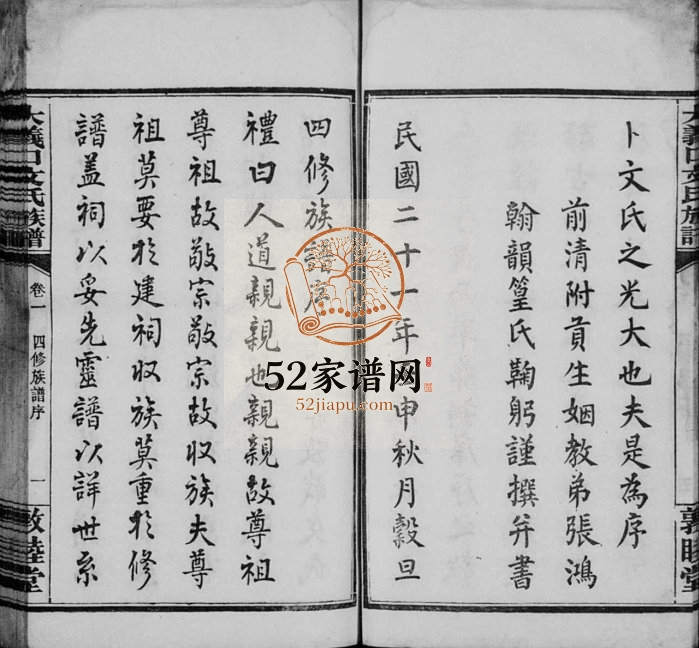 卜文氏之光大也夫是為序
前清附貢生姻教弟張鴻
翰韻篁氏鞠躬謹撰并書
民國二十一年申秋月穀旦
四修族譜序
禮曰人道親親也親親故尊祖
尊祖故敬宗敬宗故收族夫尊
祖莫要於建祠收族莫重於修
譜蓋祠以妥先靈譜以詳世系
大義口文氏族譜
卷一
四修族譜序
一
敦睦堂
52家谱网
52jiapu.com